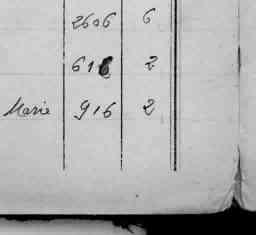 2606 6
616 2
Marie 916 2